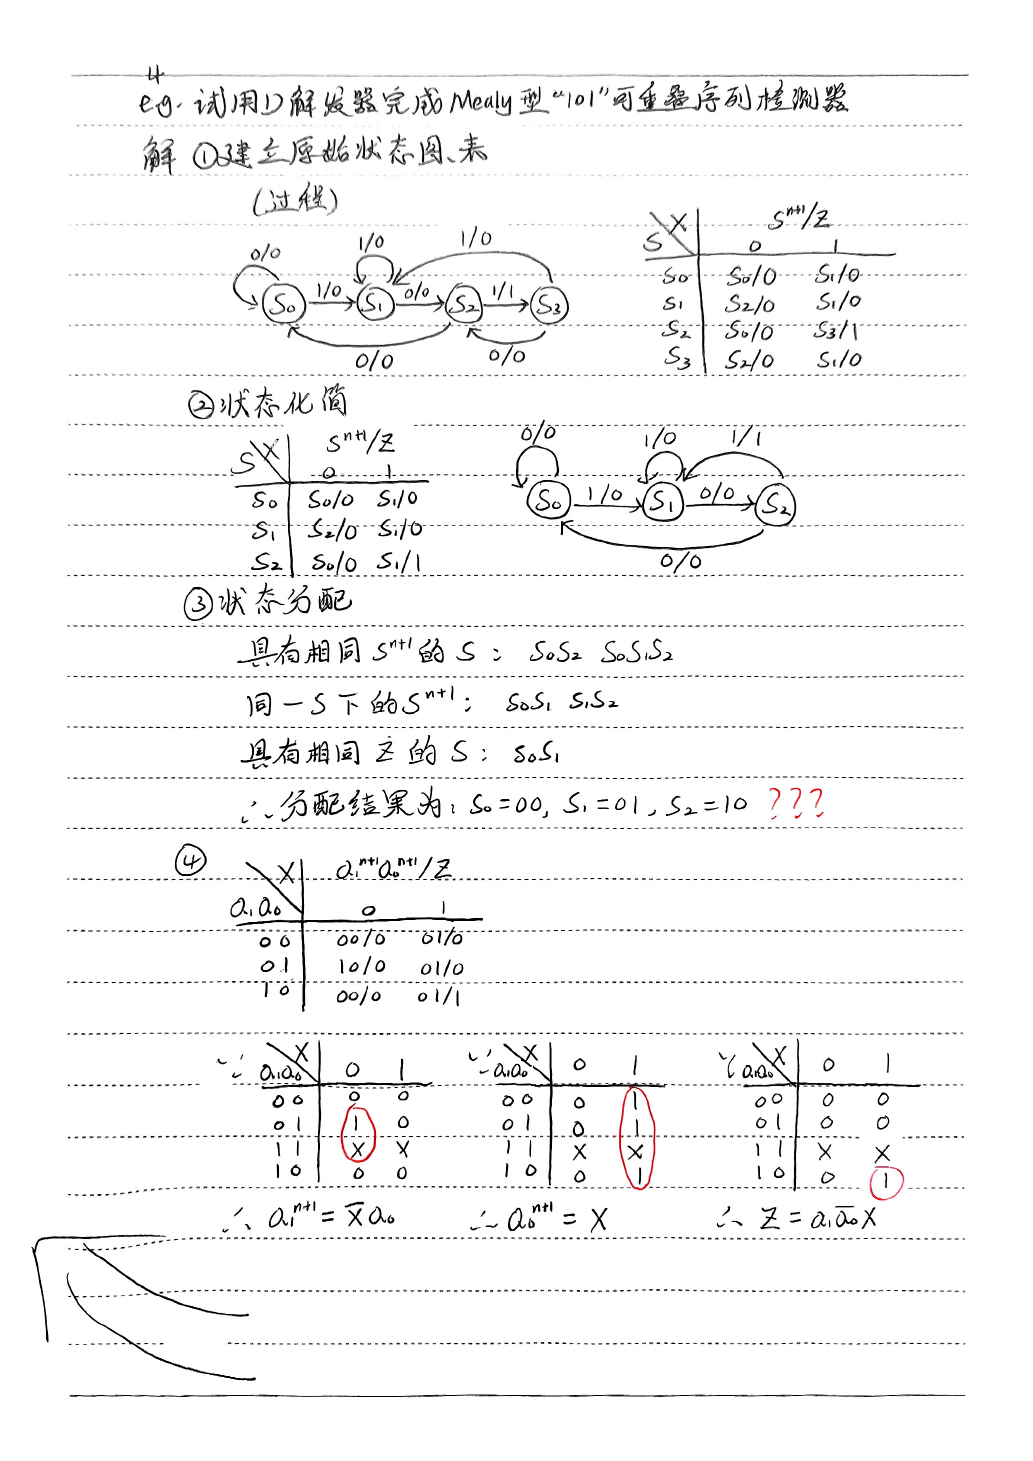 4
eg. 试用D解发器完成Mealy型"101"可重叠序列检测器
解 ①建立原始状态图、表
(过程)
0/0 1/0 1/0
S₀ 1/0 S₁ 0/0 S₂ 1/1 S₃
0/0 0/0
S X Sⁿ⁺¹/Z
0 1
S₀ S₀/0 S₁/0
S₁ S₂/0 S₁/0
S₂ S₀/0 S₃/1
S₃ S₂/0 S₁/0
②状态化简
S X Sⁿ⁺¹/Z
0 1
S₀ S₀/0 S₁/0
S₁ S₂/0 S₁/0
S₂ S₀/0 S₁/1
0/0 1/0 1/1
S₀ 1/0 S₁ 0/0 S₂
0/0
③状态分配
具有相同Sⁿ⁺¹的S: S₀S₂ S₀S₁S₂
同一S下的Sⁿ⁺¹: S₀S₁ S₁S₂
具有相同Z的S: S₀S₁
∴分配结果为: S₀=00, S₁=01, S₂=10 ???
④
X a₁ⁿ⁺¹a₀ⁿ⁺¹/Z
a₁a₀ 0 1
00 00/0 01/0
01 10/0 01/0
10 00/0 01/1
∵ a₁a₀ X 0 1
00 0 0
01 1 0
11 X X
10 0 0
∴ a₁ⁿ⁺¹ = X̅a₀
∵ a₁a₀ X 0 1
00 0 1
01 0 1
11 X X
10 0 1
∴ a₀ⁿ⁺¹ = X
∵ a₁a₀ X 0 1
00 0 0
01 0 0
11 X X
10 0 1
∴ Z = a₁a̅₀X